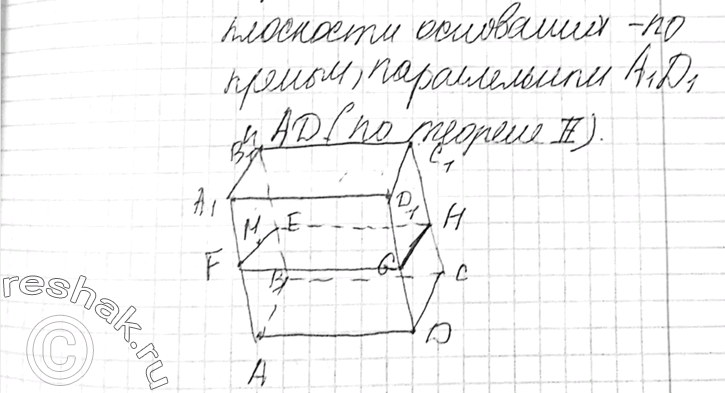 плоскости оснований - по
прямым, параллельным A₁D₁
и AD (по теореме II).
B₁
C₁
A₁
D₁
M E
H
F
B
G
C
D
A
reshak.ru
©